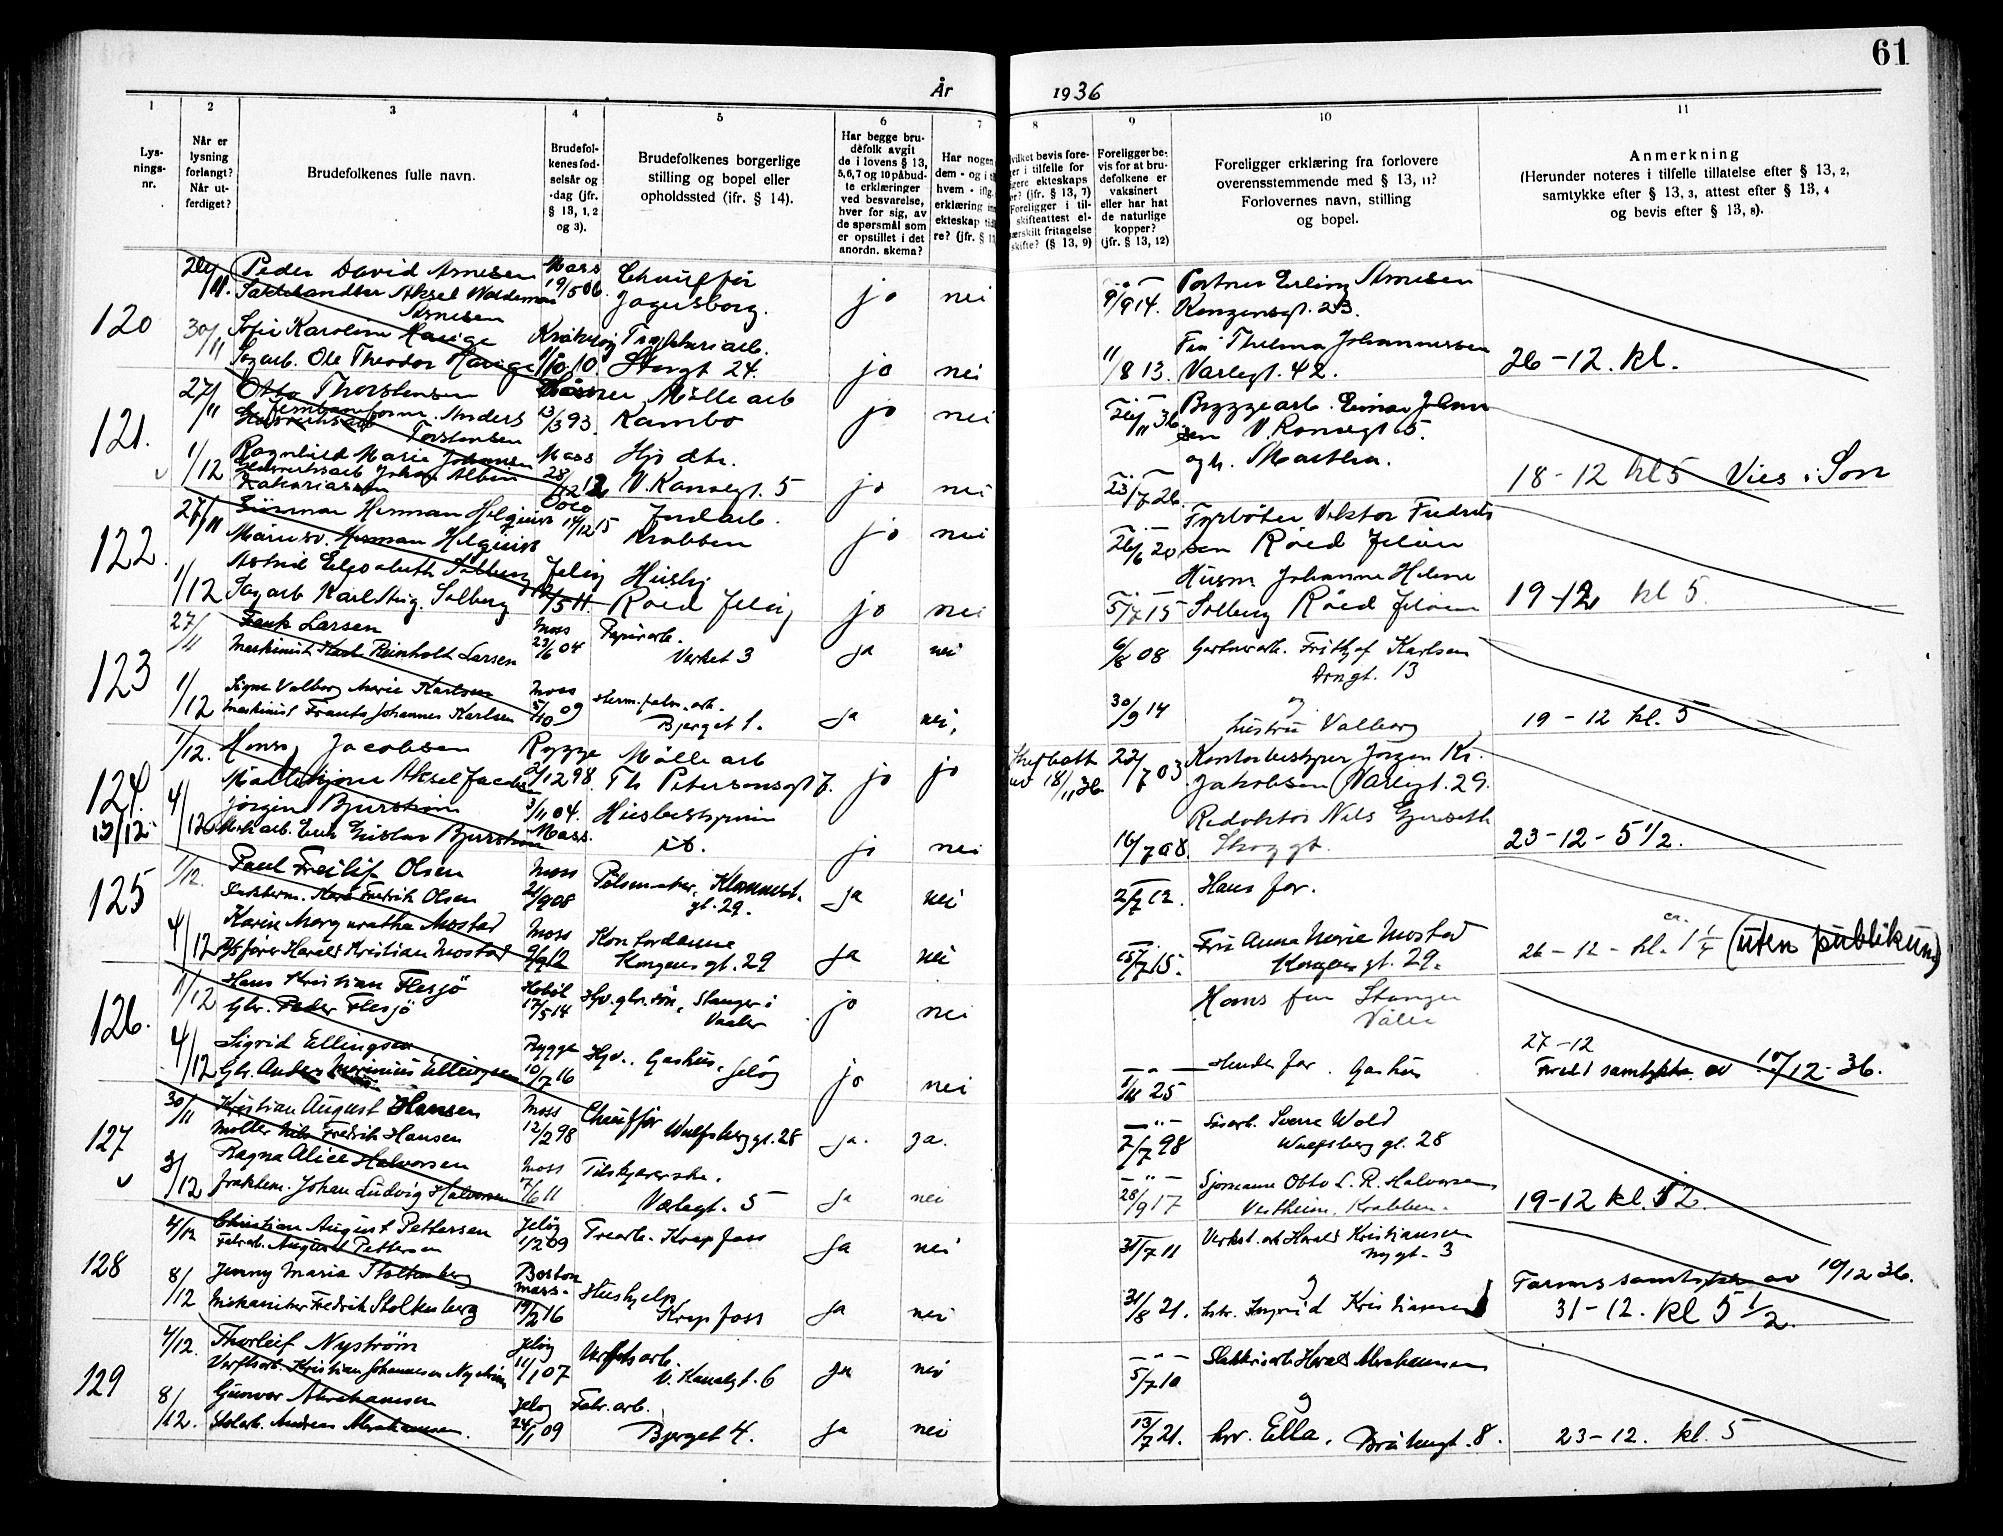 61
År 1936
1 2 3 4 5 6 7 8 9 10 11
Lys-
nings-
nr.
Når er
lysning
forlangt?
Når ut-
ferdiget?
Brudefolkenes fulle navn.
Brudefol-
kenes fød-
selsår og
-dag (jfr.
§ 13, 1, 2
og 3).
Brudefolkenes borgerlige
stilling og bopel eller
opholdssted (ifr. § 14).
Har begge bru-
defolk avgit
de i lovens § 13,
5, 6, 7 og 10 påbud-
te erklæringer
ved besvarelse,
hver for sig, av
de spørsmål som
er opstillet i det
anordn. skema?
Har nogen
dem - og i
hvem - ifl.
erklæring
ekteskap
re? (jfr. §
vilket bevis fore-
er i tilfelle for
ekteskaps
? (ifr. § 13, 7)
Foreligger i til-
skifteattest el-
særskilt fritagelse
skifte? (§ 13, 9)
Foreligger be-
vis for at bru-
defolkene er
vaksinert
eller har hat
de naturlige
kopper?
(jfr. § 13, 12)
Foreligger erklæring fra forlovere
overensstemmende med § 13, 11?
Forlovernes navn, stilling
og bopel.
Anmerkning
(Herunder noteres i tilfelle tillatelse efter § 13, 2,
samtykke efter § 13, 3, attest efter § 13, 4
og bevis efter § 13, 8).
120
Peder David Arnesen Moss 19/5 06. Chauffør
Aksel Waldemar Arnesen Jagersborg. jo nei
9/9 14. Portner Erling Arnesen
Kongensgt. 23.
30/11 Sofie Karoline Hauge Kråkerøy
Sagarb. Ole Theodor Hauge 1/10 10. Storgt 24. jo nei
11/8 13. Fru Thelma Johannessen
Varlegt. 42. 26-12. kl.
121.
27/11 Otto Thorstensen Mølle arb
Anders Torstensen 13/3 93. Kambo jo nei
26/11 36. Byggearb. Einar Johan
sen V. Kanalgt 5.
1/12 Ragnhild Marie Johansen Moss 28/12 12 Hjv dtr.
Johan Albin Zakariassen V. Kanalgt. 5 jo nei
23/7 26. og h. Martha. 18-12 kl 5 Vies i Son
122.
27/11 Herman Helgesen Oslo 14/12 15 Jordarb.
Herman Helgesen Krabben jo nei
26/6 20 Fyrbøter Viktor Fredrik
sen Røed Jeløen
1/12 Astrid Elisabeth Solberg Jeløy Hushj
Sagarb Karl Aug. Solberg /5 11. Røed Jeløy jo nei
5/7 15 Husm Johanne Helene
Solberg Røed Jeløen 19-12 kl 5.
123
27/11 Larsen Moss 23/6 04 Papirarb.
Maskinist Karl Reinholt Larsen Verket 3 ja nei
6/8 08 Gartnerarb. Frithjof Karlsen
Drngt. 13
1/12 Signe Valborg Marie Karlsen Moss 5/10 09 Herm.fabr.arb.
Maskinist Frants Johannes Karlsen Bjerget 1. ja nei,
30/9 14 og
hustru Valborg 19-12 kl. 5
124.
13/12.
1/12. Jacobsen Rygge /12 98. Mølle arb
Aksel Jacobsen Th Petersonsgt 7. jo jo
av 18/11 36. 22/7 03 Kontorbestyrer Jørgen Kr.
Jakobsen Varlegt. 29.
4/12 Bjurstrøm 3/11 04. Husbestyrerin
Gustav Bjurstrøm Moss. jo nei
16/7 08. Redaktør Nils Gjerseth
Skoggt. 23-12-5 1/2.
125
1/12. Paul Freilif Olsen Moss 21/9 08 Pølsemaker, 
Slakterm. Karl Fredrik Olsen gt. 29. ja nei
2/7 12. Hans far.
4/12 Karin Margrethe Mostad Moss 9/9 12 Kontordame
Harald Kristian Mostad Kongens gt. 29 ja nei
15/7 15. Fru Anna Marie Mostad
Kongens gt. 29. 26-12-kl. ca. 1 1/4 (uten publikum)
126.
1/12 Hans Kristian Flesjö Hobøl 17/5 14 Hjv. gbr. søn, Stanger i
Gbr. Peder Flesjö Vaaler jo nei
Hans far Stanger
Våler
4/12 Sigrid Ellingsen Rygge 10/7 16 Hjv. Gashus, Jeløy
Gbr. Anders Marinius Ellingsen jo nei
1/11 25 Hendes far. Gashus 27-12
Foreld samtykke av 10/12-36.
127
30/11 Kristian August Hansen Moss 12/2 98 Chauffør
Møller Nils Fredrik Hansen Wulfsberg gt. 28 ja. ja.
7/7 98 Snarb. Sverre Wold
Wulfsberg gt. 28
3/12 Ragna Alice Halvorsen Moss 7/6 11 Tilskjærerske.
Johan Ludvig Halvorsen Varlegt. 5 ja nei
28/9 17 Sjømann Otto L. R. Halvorsen
Vestheim, Krabben. 19-12 kl. 5 2.
128
4/12 Christian August Pettersen Jeløy 1/2 09 Trearb. Krapfoss
Fabr.arb. August Pettersen ja nei
31/7 11 Verkst.arb Harald Kristiansen
Nygt. 3
8/12 Jenny Maria Stoltenberg Boston Mass. 19/2 16 Hushjelp
Mekaniker Fredrik Stoltenberg Krapfoss ja nei
31/8 21. og
hstr. Ingrid Kristiansen
Farens samtykke av 10/12 36.
31-12. kl 5 1/2.
129
4/12. Thorleif Nystrøm Jeløy 11/1 07 Verftsarb.
Verftsarb. Kristian Johannesen Nystrøm V. Kanalgt. 6 ja nei
5/7 10 Slakteriarb. Harald Abrahamsen
8/12. Gunvor Abrahamsen Jeløy 24/1 09 Fabr.arb.
Andreas Abrahamsen. Bjerget 4. ja nei
13/7 21. og
hr. Ella, gt. 8. 23-12. kl. 5